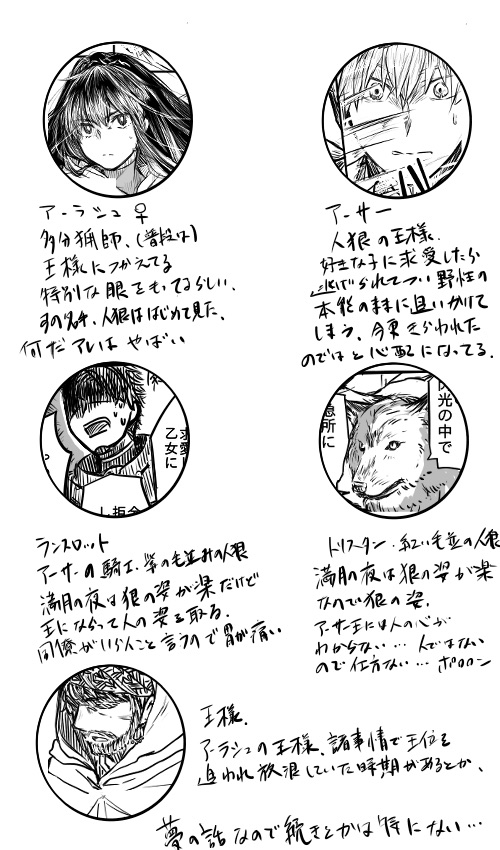 アーラシュ♀
多分猟師、(普段は)
王様につかえてる
特別な眼をもてるらしい、
弓の名手、人狼ははじめて見た、
何だアレは やばい
アーサー
人狼の王様、
好きな子に求愛したら
逃げられてつい野性の
本能のままに追いかけて
しまう、今更きらわれた
のではと心配になってる、
求愛
乙女に
し指令
陽光の中で
息所に
ランスロット
アーサーの騎士、紫の毛並みの人狼
満月の夜は狼の姿が楽だけど
王になかって人の姿を取る、
同僚がいらんこと言うので胃が痛い
トリスタン・紅い毛並の人狼
満月の夜は狼の姿が楽
なので狼の姿、
アーサー王には人の心が
わからない… 人ではない
ので仕方ない… ポロロン
王様、
アーラシュの王様、諸事情で王位を
追われ放浪していた時期があるとか、
夢の話なので続きとかは特にない…